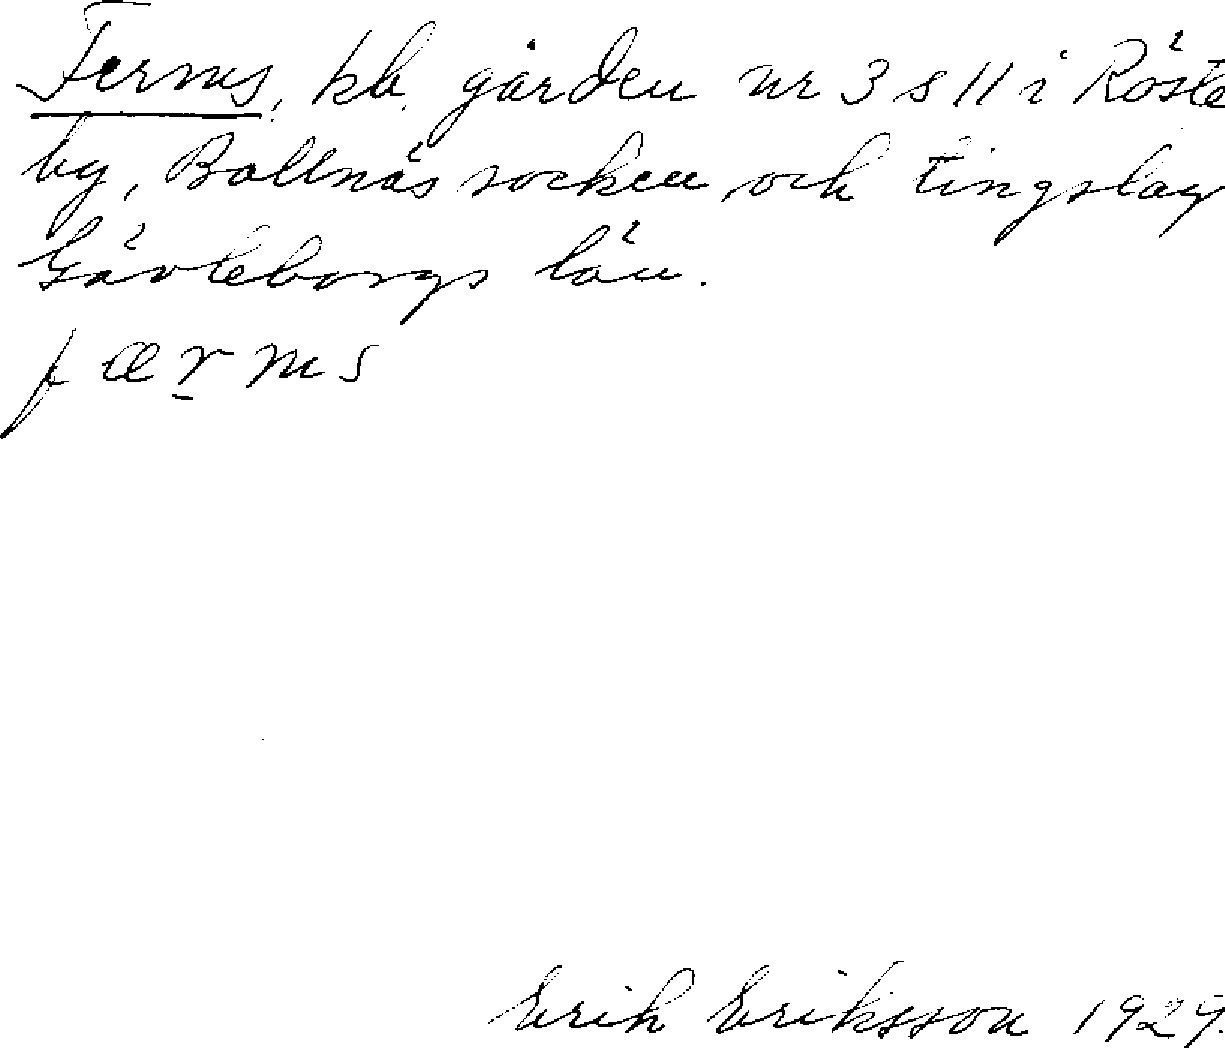 Ferms, kb. gården nr 3 & 11 i Röste
by, Bollnäs socken och tingslag
Gävleborgs län.
f æ r m s
Erik Eriksson 1929.